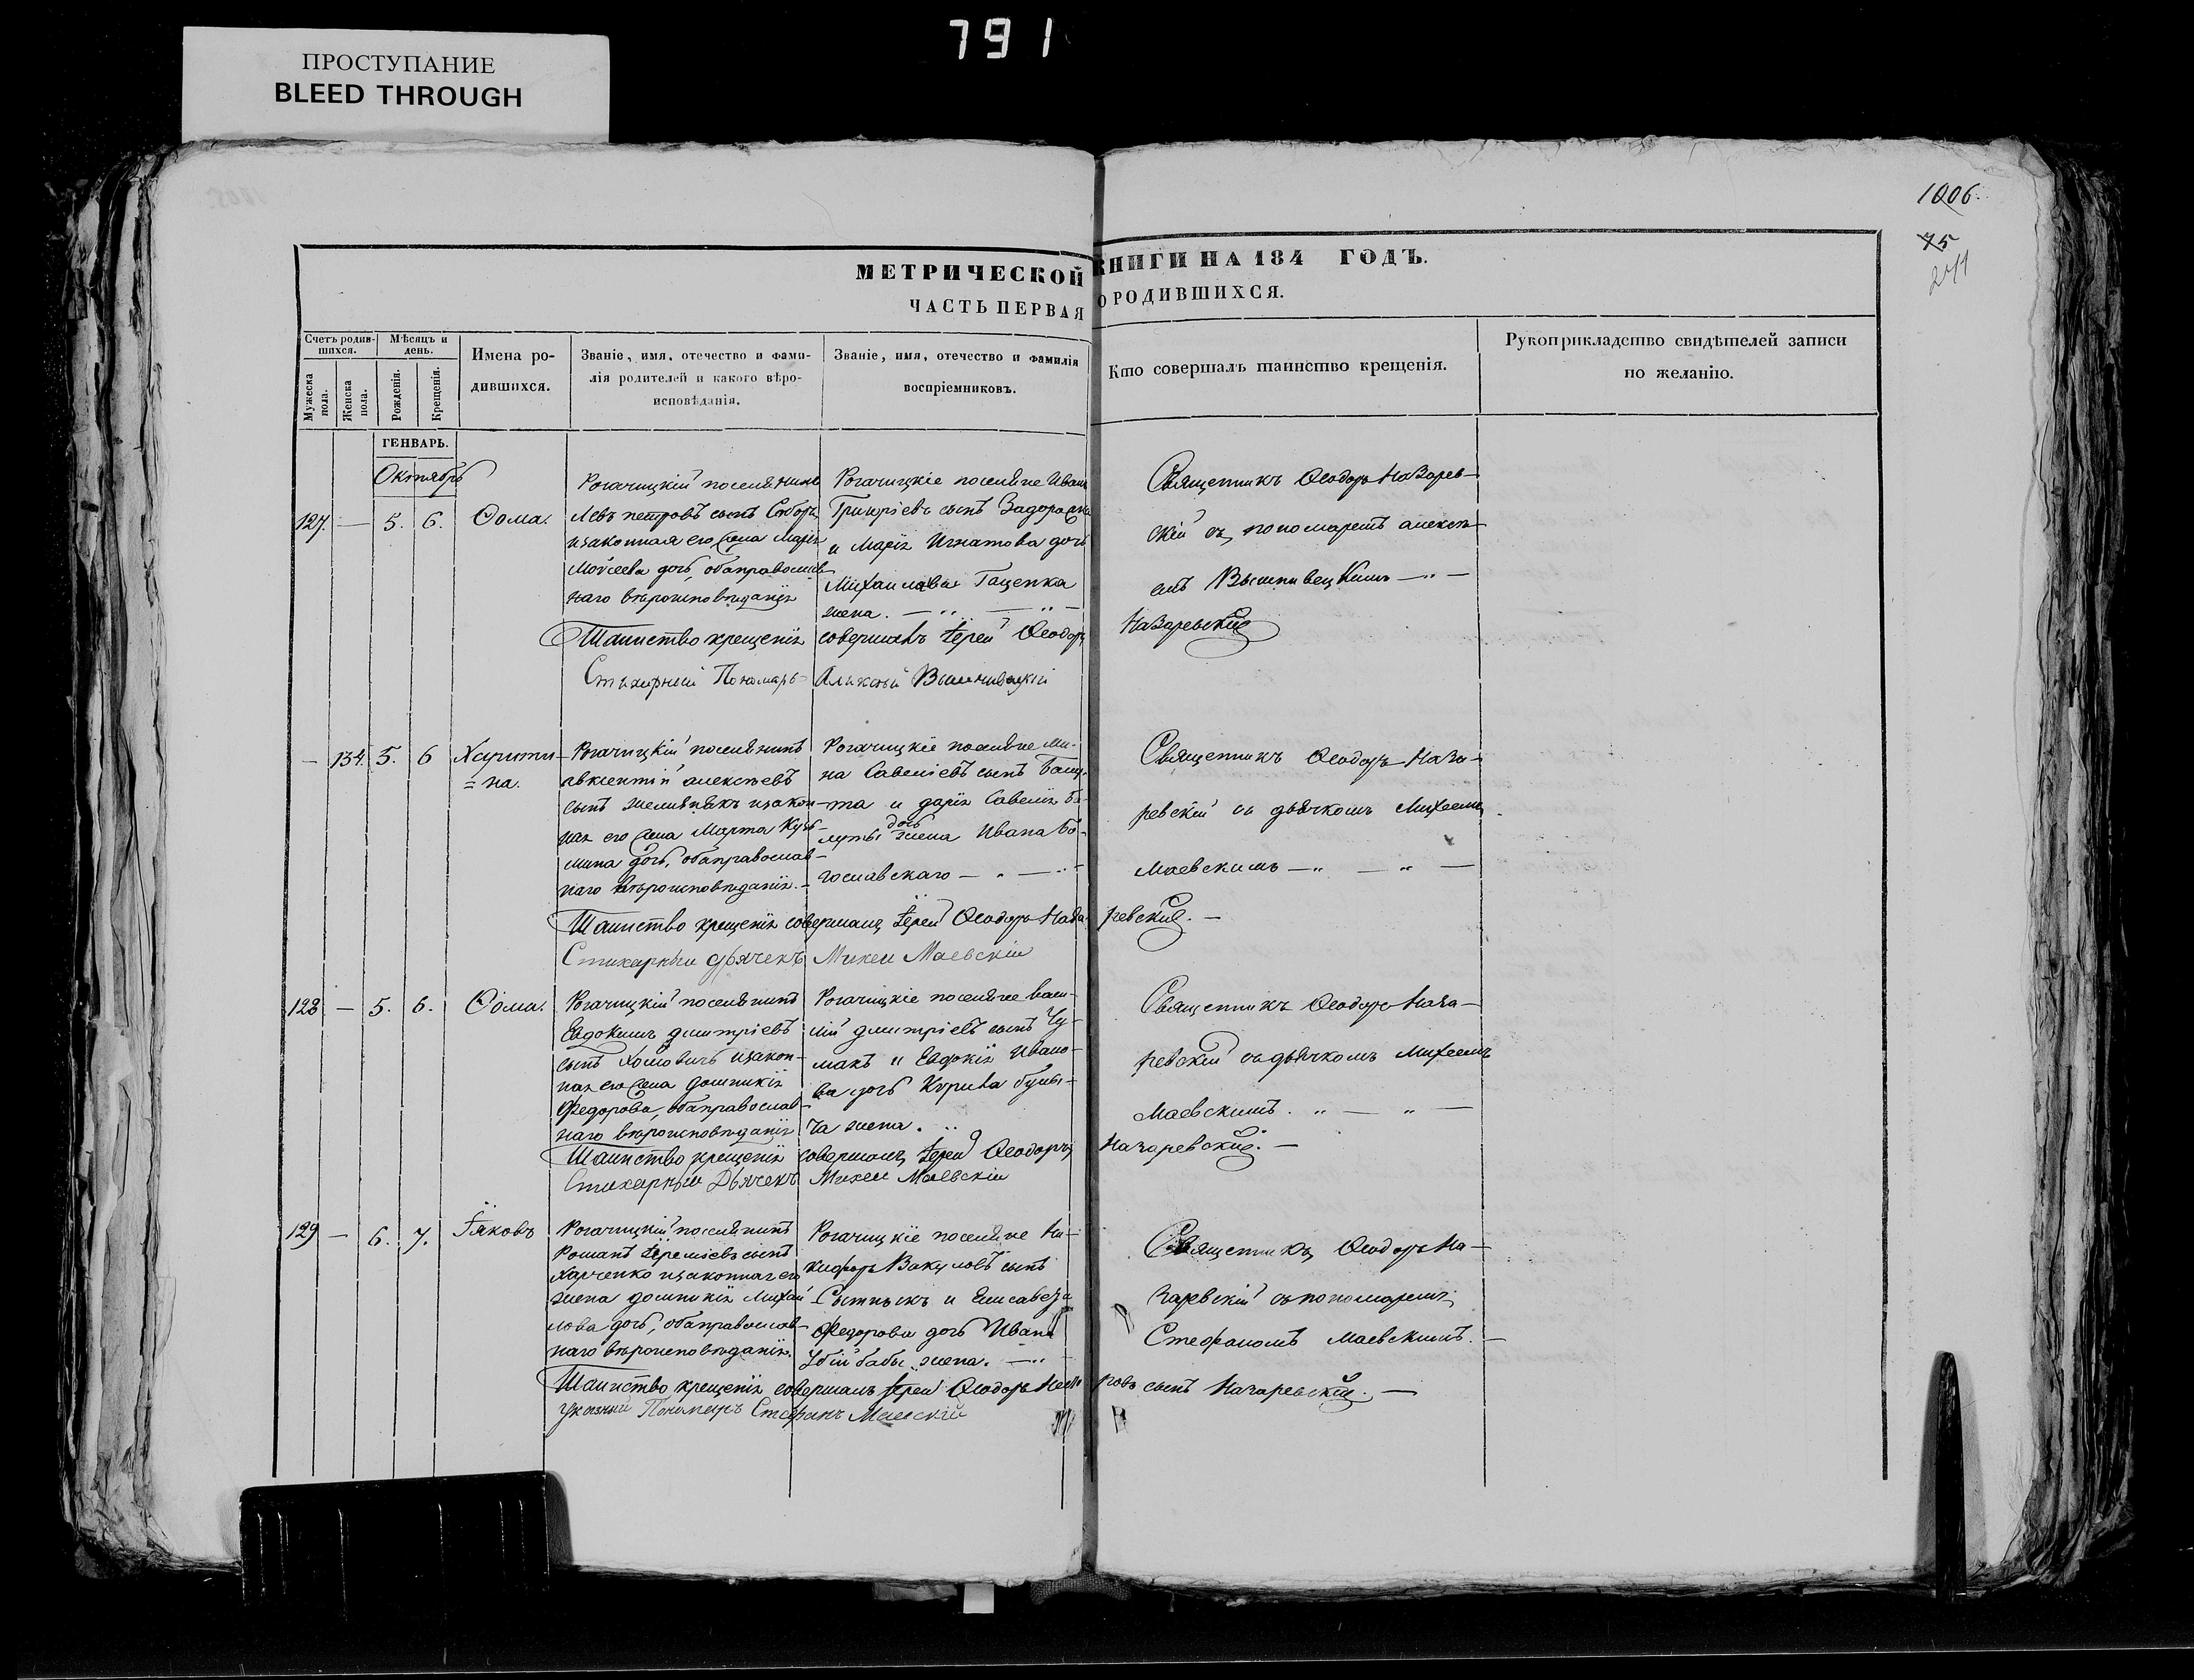 791
ПРОСТУПАНИЕ
BLEED THROUGH
1006.
75
МЕТРИЧЕСКОЙ КНИГИ НА 184 ГОДЪ.
ЧАСТЬ ПЕРВАЯ О РОДИВШИХСЯ.
Счетъ родив-
шихся.
Мѣсяцъ и
день.
Мужеска
пола.
Женска
пола.
Рожденія.
Крещенія.
Имена ро-
дившихся.
Званіе, имя, отечество и фами-
лія родителей и какого вѣро-
исповѣданія.
Званіе, имя, отечество и фамилія
воспріемниковъ.
Кто совершалъ таинство крещенія.
Рукоприкладство свидѣтелей записи
по желанію.
ГЕНВАРЬ.
Октябрь
127. — 5. 6. Ѳома.
Рогачицкій поселянинъ
Левъ петровъ сынъ
изаконная его жена Марія
Моѵсеева дочь, обаправослав-
наго вѣроисповѣданія
Рогачицкіе поселяне Иванъ
Григоріевъ сынъ
и Марія Игнатова дочь
Михаилова Гаценка
жена. — „ — „ —
Священникъ Ѳеодоръ Назарев-
скій съ пономаремъ алексѣ-
емъ Вышнивецкимъ — „ —
Таинство крещенія совершалъ Іерей Ѳеодоръ Назаревскій
Стихарный Пономарь Алексѣй Вышнивецкій
— 134. 5. 6 Харити-
=на.
Рогачицкій поселянинъ
авксентій алексѣевъ
сынъ изакон-
ная его жена Марта Кузь-
мина дочь, обаправослав-
наго вѣроисповѣданія. —
Рогачицкіе поселяне Ми-
на Савеліевъ сынъ
та и дарія Савелія Ба-
луты дочь жена Ивана Бо-
гославскаго — „ — „ —
Священникъ Ѳеодоръ Наза-
ревскій съ дьячкомъ Михеемъ
Маевскимъ — „ — „ —
Таинство крещенія совершалъ Іерей Ѳеодоръ Назаревскій. —
Стихарный дьячекъ Михеи Маевскіи
128 — 5. 6. Ѳома.
Рогачицкій поселянинъ
Евдокимъ дмитріевъ
сынъ Хомовичъ изакон-
ная его жена домникія
Федорова, обаправослав-
наго вѣроисповѣданія
Рогачицкіе поселяне васи-
лій дмитріевъ сынъ Чу-
макъ и Евдокія Ивано-
ва дочь
ча жена. „
Священникъ Ѳеодоръ Наза-
ревскій съ дьячкомъ Михеемъ
Маевскимъ. „ — „ —
Таинство крещенія совершалъ Іерей Ѳеодоръ Назаревскій. —
Стихарный Дьячекъ Михеи Маевскіи
129 — 6. 7. Іяковъ
Рогачицкій поселянинъ
Романъ Іереміевъ сынъ
Харченко изаконная его
жена домникія Михаи-
лова дочь, обаправослав-
наго вѣроисповѣданія.
Рогачицкіе поселяне Ни-
кифоръ Вакуловъ сынъ
Сытникъ и Елисавета
Федорова дочь Ивана
Убій бабы жена. — „
Священникъ Ѳеодоръ На-
заревскій съ пономаремъ
Стефаномъ Маевскимъ. —
Таинство крещенія совершалъ Іерей Ѳеодоръ сынъ Назаревскій. —
Указный Пономарь Стефанъ Маевскій